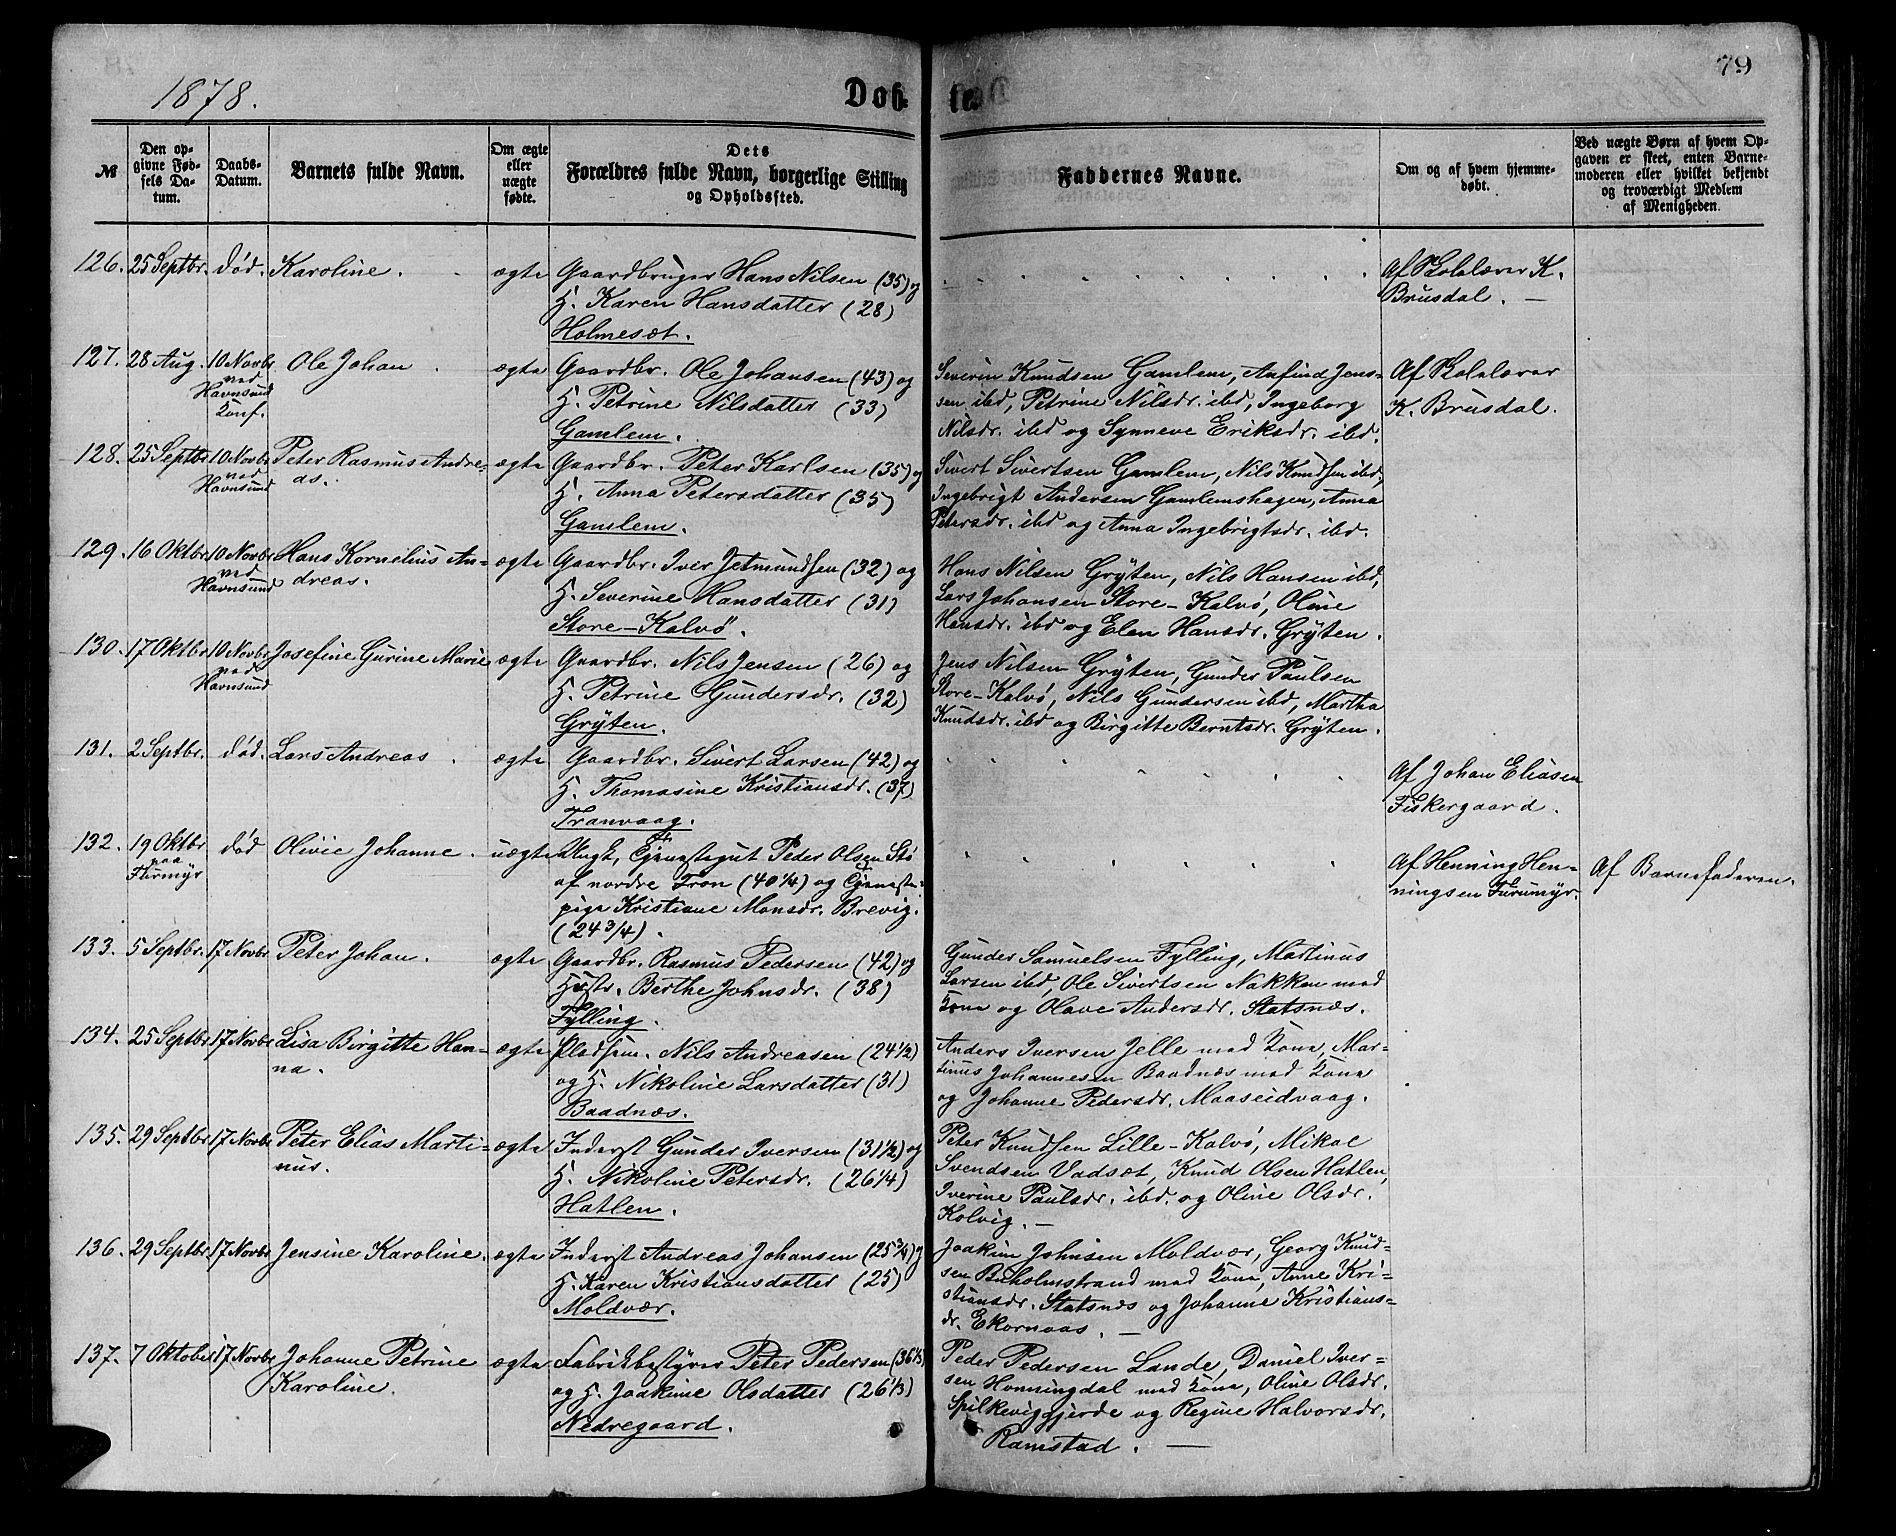 79
1878.
Døb-
te.
№
Den op-
givne Fød-
sels Da-
tum.
Daabs-
Datum.
Barnets fulde Navn.
Om ægte
eller
uægte
fødte.
Dets
Forældres fulde Navn, borgerlige Stilling
og Opholdssted.
Faddernes Navne.
Om og af hvem hjemme-
døbt.
Ved uægte Børn af hvem Op-
gaven er skeet, enten Barne-
moderen eller hvilket bekjendt
og troværdigt Medlem
af Menigheden.
126. 25 Septbr. død. Karoline. ægte Gaardbruger Hans Nilsen (35) og
H. Karen Hansdatter (28)
Holmesæt.
Af Skolelærer K.
Brusdal. —
127. 28 Aug. 10 Novbr ved Havnsund Konf. Ole Johan ægte Gaardbr. Ole Johansen (43) og
H. Petrine Nilsdatter (33)
Gamlem.
Severin Knudsen Gamlem, Anfind Jens-
sen ibd, Petrine Nilsdr. ibd, Ingeborg
Nilsdr. ibd og Synneve Eriksdr. ibd.
Af Skolelærer
K. Brusdal.
128. 25 Septbr 10 Novbr ved Havnsund Peter Rasmus Andre-
as. ægte Gaardbr. Peter Karlsen (35) og
H. Anna Petersdatter (35)
Gamlem.
Sivert Sivertsen Gamlem, Nils Knudsen ibd,
Ingebrigt Andersen Gamlemshagen, Anna
Petersdr. ibd og Anna Ingebrigtsdr. ibd.
129. 16 Oktbr 10 Novbr ved Havnsund Hans Kornelius An-
dreas. ægte Gaardbr. Iver Jetmundsen (32) og
H. Severine Hansdatter (31)
Store-Kalvø.
Hans Nilsen Grÿten, Nils Hansen ibd,
Lars Johansen Store-Kalvø, Oline
Hansdr. ibd og Elen Hansdr. Grÿten.
130. 17 Oktbr 10 Novbr ved Havnsund Josefine Gurine Marie ægte Gaardbr. Nils Jensen (26) og
H. Petrine Gundersdr. (32)
Grÿten.
Jens Nilsen Grÿten, Gunder Paulsen
Store-Kalvø, Nils Gundersen ibd, Martha
Knudsdr. ibd og Birgitte Berntsdr. Grÿten.
131. 2 Septbr. død. Lars Andreas ægte Gaardbr. Sivert Larsen (42) og
H. Thomasine Kristiansdr. (37)
Tranvaag.
Af Johan Eliasen
Fiskergaard.
132. 19 Oktbr paa Furmÿr død Olivie Johanne. uægte Ungk, Tjenestegut Peder Olsen Stø
af nordre Fron (40 1/4) og Tjeneste-
pige Kristiane Monsdr. Brevig.
(24 3/4).
Af Henning Hen-
ningsen Furumÿr.
Af Barnefaderen.
133. 5 Septbr. 17 Novbr Peter Johan. ægte Gaardbr. Rasmus Pedersen (42) og
Hustr. Berthe Johnsdr. (38)
Fylling.
Gunder Samuelsen Fylling, Martinus
Larsen ibd, Ole Sivertsen Nakken med
Kona og Olave Andersdr. Statsnæs.
134. 25 Septbr 17 Novbr Lisa Birgitte Han-
na. ægte Pladsm. Nils Andreasen (24 1/2)
og H. Nikoline Larsdatter (31)
Baadnæs.
Anders Iversen Jelle med Kona, Mar-
tinus Johannesen Baadnæs med Kona
og Johanne Pedersdr. Maaseidvaag.
135. 29 Septbr 17 Novbr Peter Elias Marti-
nus. ægte Inderst Gunder Iversen (31 1/2) og
H. Nikoline Petersdr. (26 1/4)
Hatlen.
Peter Knudsen Lille-Kalvø, Mikal
Svendsen Vadsæt, Knud Olsen Hatlen,
Iverine Paulsdr. ibd. og Oline Olsdr.
Kolvig. —
136. 29 Septbr. 17 Novbr Jensine Karoline. ægte Inderst Andreas Johansen (25 3/4) og
H. Karen Kristiansdatter (25)
Moldvær.
Joakim Johnsen Moldvær, Georg Knud-
sen Buholmstrand med Kona, Anne Kri-
stiansdr. Statsnæs og Johanne Kristians-
dr. Ekornaas. —
137. 7 Oktober 17 Novbr Johanne Petrine
Karoline. ægte Fabrikbestyrer Peter Pedersen (36 1/3)
og H. Joakine Olsdatter (26 1/3)
Nedregaard.
Peder Pedersen Lande, Daniel Iver-
sen Honningdal med Kona, Oline Olsdr.
Spilkeviggjerde og Regine Halvorsdr.
Ramstad. —